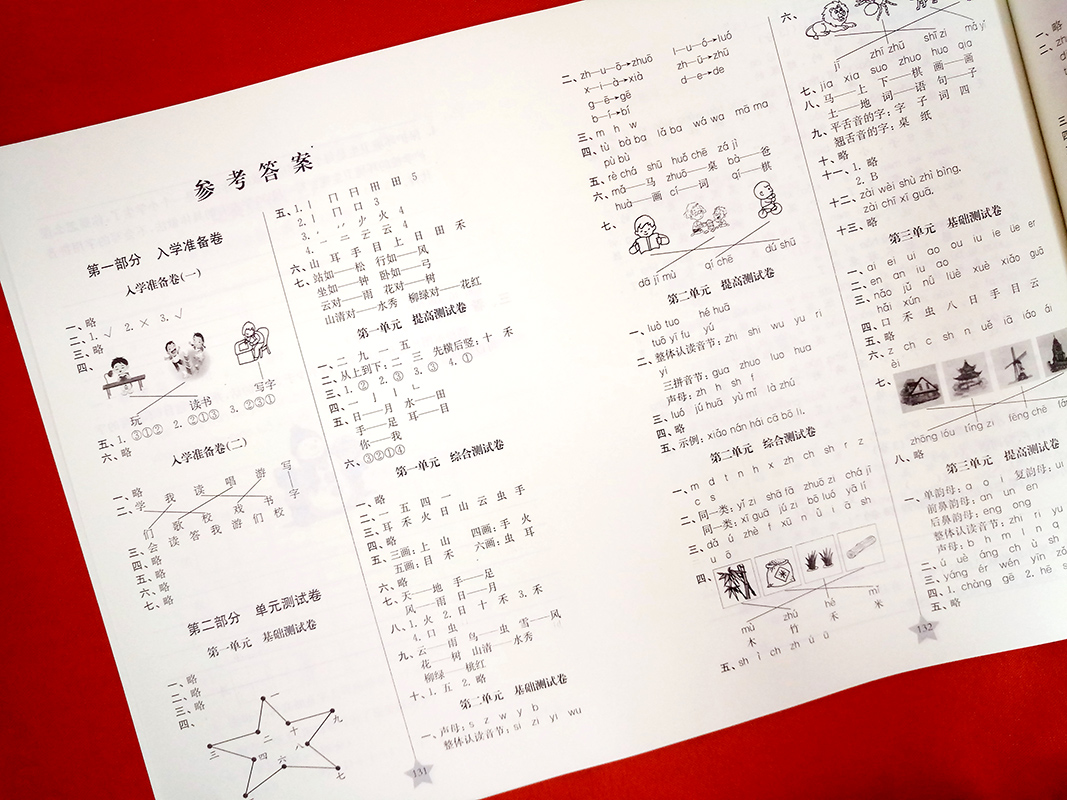 参考答案
第一部分 入学准备卷
入学准备卷(一)
一、略
二、1. √ 2. × 3. √
三、略
四、
写字
读书
玩
五、1. ③①② 2. ②①③ 3. ②③①
六、略
入学准备卷(二)
一、略
二、学 我 读 唱 游 写
们 歌 校 戏 书 字
三、会 读 答 我 游 们 校
四、略
五、略
六、略
七、略
第二部分 单元测试卷
第一单元 基础测试卷
一、略
二、略
三、略
四、
一
九
二
十
三
八
四
六
七
五、1. 丨 冂 日 田 田 5
2. 丨 冂 口 3
4. 一 二 云 云 4
六、山 耳 手 目 上 日 田 禾
七、站如——松 行如——风
坐如——钟 卧如——弓
云对——雨 花对——树
山清对——水秀 柳绿对——花红
第一单元 提高测试卷
一、二 九 一 五
二、从上到下:二 三 先横后竖:十 禾
三、1. ② 2. ③ 3. ③ 4. ①
五、日——月 水——田
手——足 耳——目
你——我
六、③②①④
第一单元 综合测试卷
一、略
二、一 五 四 一
三、耳 禾 火 日 山 云 虫 手
四、略
五、三画:上 山 四画:手 火
五画:目 禾 六画:虫 耳
六、略
七、天——地 手——足
风——雨 日——月
八、1. 火 2. 日 十 禾 3. 禾
4. 口 虫
九、云——雨 鸟——虫 雪——风
花——树 山清——水秀
柳绿——桃红
十、1. 五 2. 略
第二单元 基础测试卷
一、声母:s z w y b
整体认读音节:si zi yi wu
131
二、zh—u—ō→zhuō l—u—ó→luó
x—i—à→xià zh—ū→zhū
g—ē→gē d—e→de
b—ǐ→bǐ
三、m h w
四、tù bà ba lā ba wá wa mā ma
pù bù
五、rè chá shū huǒ chē zá jì
六、mǎ——马 zhuō——桌 bà——爸
huà——画 cí——词 qí——棋
七、
dā jī mù qí chē dú shū
第二单元 提高测试卷
一、luò tuo hé huā
tuō yī fu yú
二、整体认读音节:zhi shi wu yu ri
yi
三拼音节:gua zhuo luo hua
声母:zh h sh f
三、luó jú huā yù mǐ là zhú
四、略
五、示例:xiǎo nán hái cā bō li.
第二单元 综合测试卷
一、m d t n h x zh ch sh r z
c s
二、同一类:yǐ zi shā fā zhuō zi chá jī
同一类:xī guā jú zi bō luó yā lí
三、dá ú zhè f xū n ǔ i ā sh
u ō
四、
mù zhú hé mǐ
木 竹 禾 米
五、sh ī ch zh ú ū
六、
jī zhī zhū shī zi mǎ yǐ
七、jia xia suo zhuo huo qia
八、马——上 下——棋 画——画
土——地 词——语 句——子
九、平舌音的字:字 子 词 四
翘舌音的字:桌 纸
十、略
十一、1. 略
2. B
十二、zǎi wèi shù zhì bìng.
zài chī xī guā.
十三、略
第三单元 基础测试卷
一、ai ei ui ao ou iu ie üe er
二、en an iu ao
三、nǎo jǔ nǚ lüè xuě xiǎo guō
hǎi xún
四、口 禾 虫 八 日 手 目 云
五、略
六、z ch c sh n uě iā iáo ái
èi
七、
zhōng lóu tíng zi fēng chē
八、略
第三单元 提高测试卷
一、单韵母:a o i 复韵母:ui
前鼻韵母:an un en
后鼻韵母:eng ong
整体认读音节:zhi ri yu
声母:b h m l n q
二、ù uè áng ch ǔ sh
三、yáng ér wén yīn
四、1. chàng gē 2. hē
五、略
132
一、略
二、